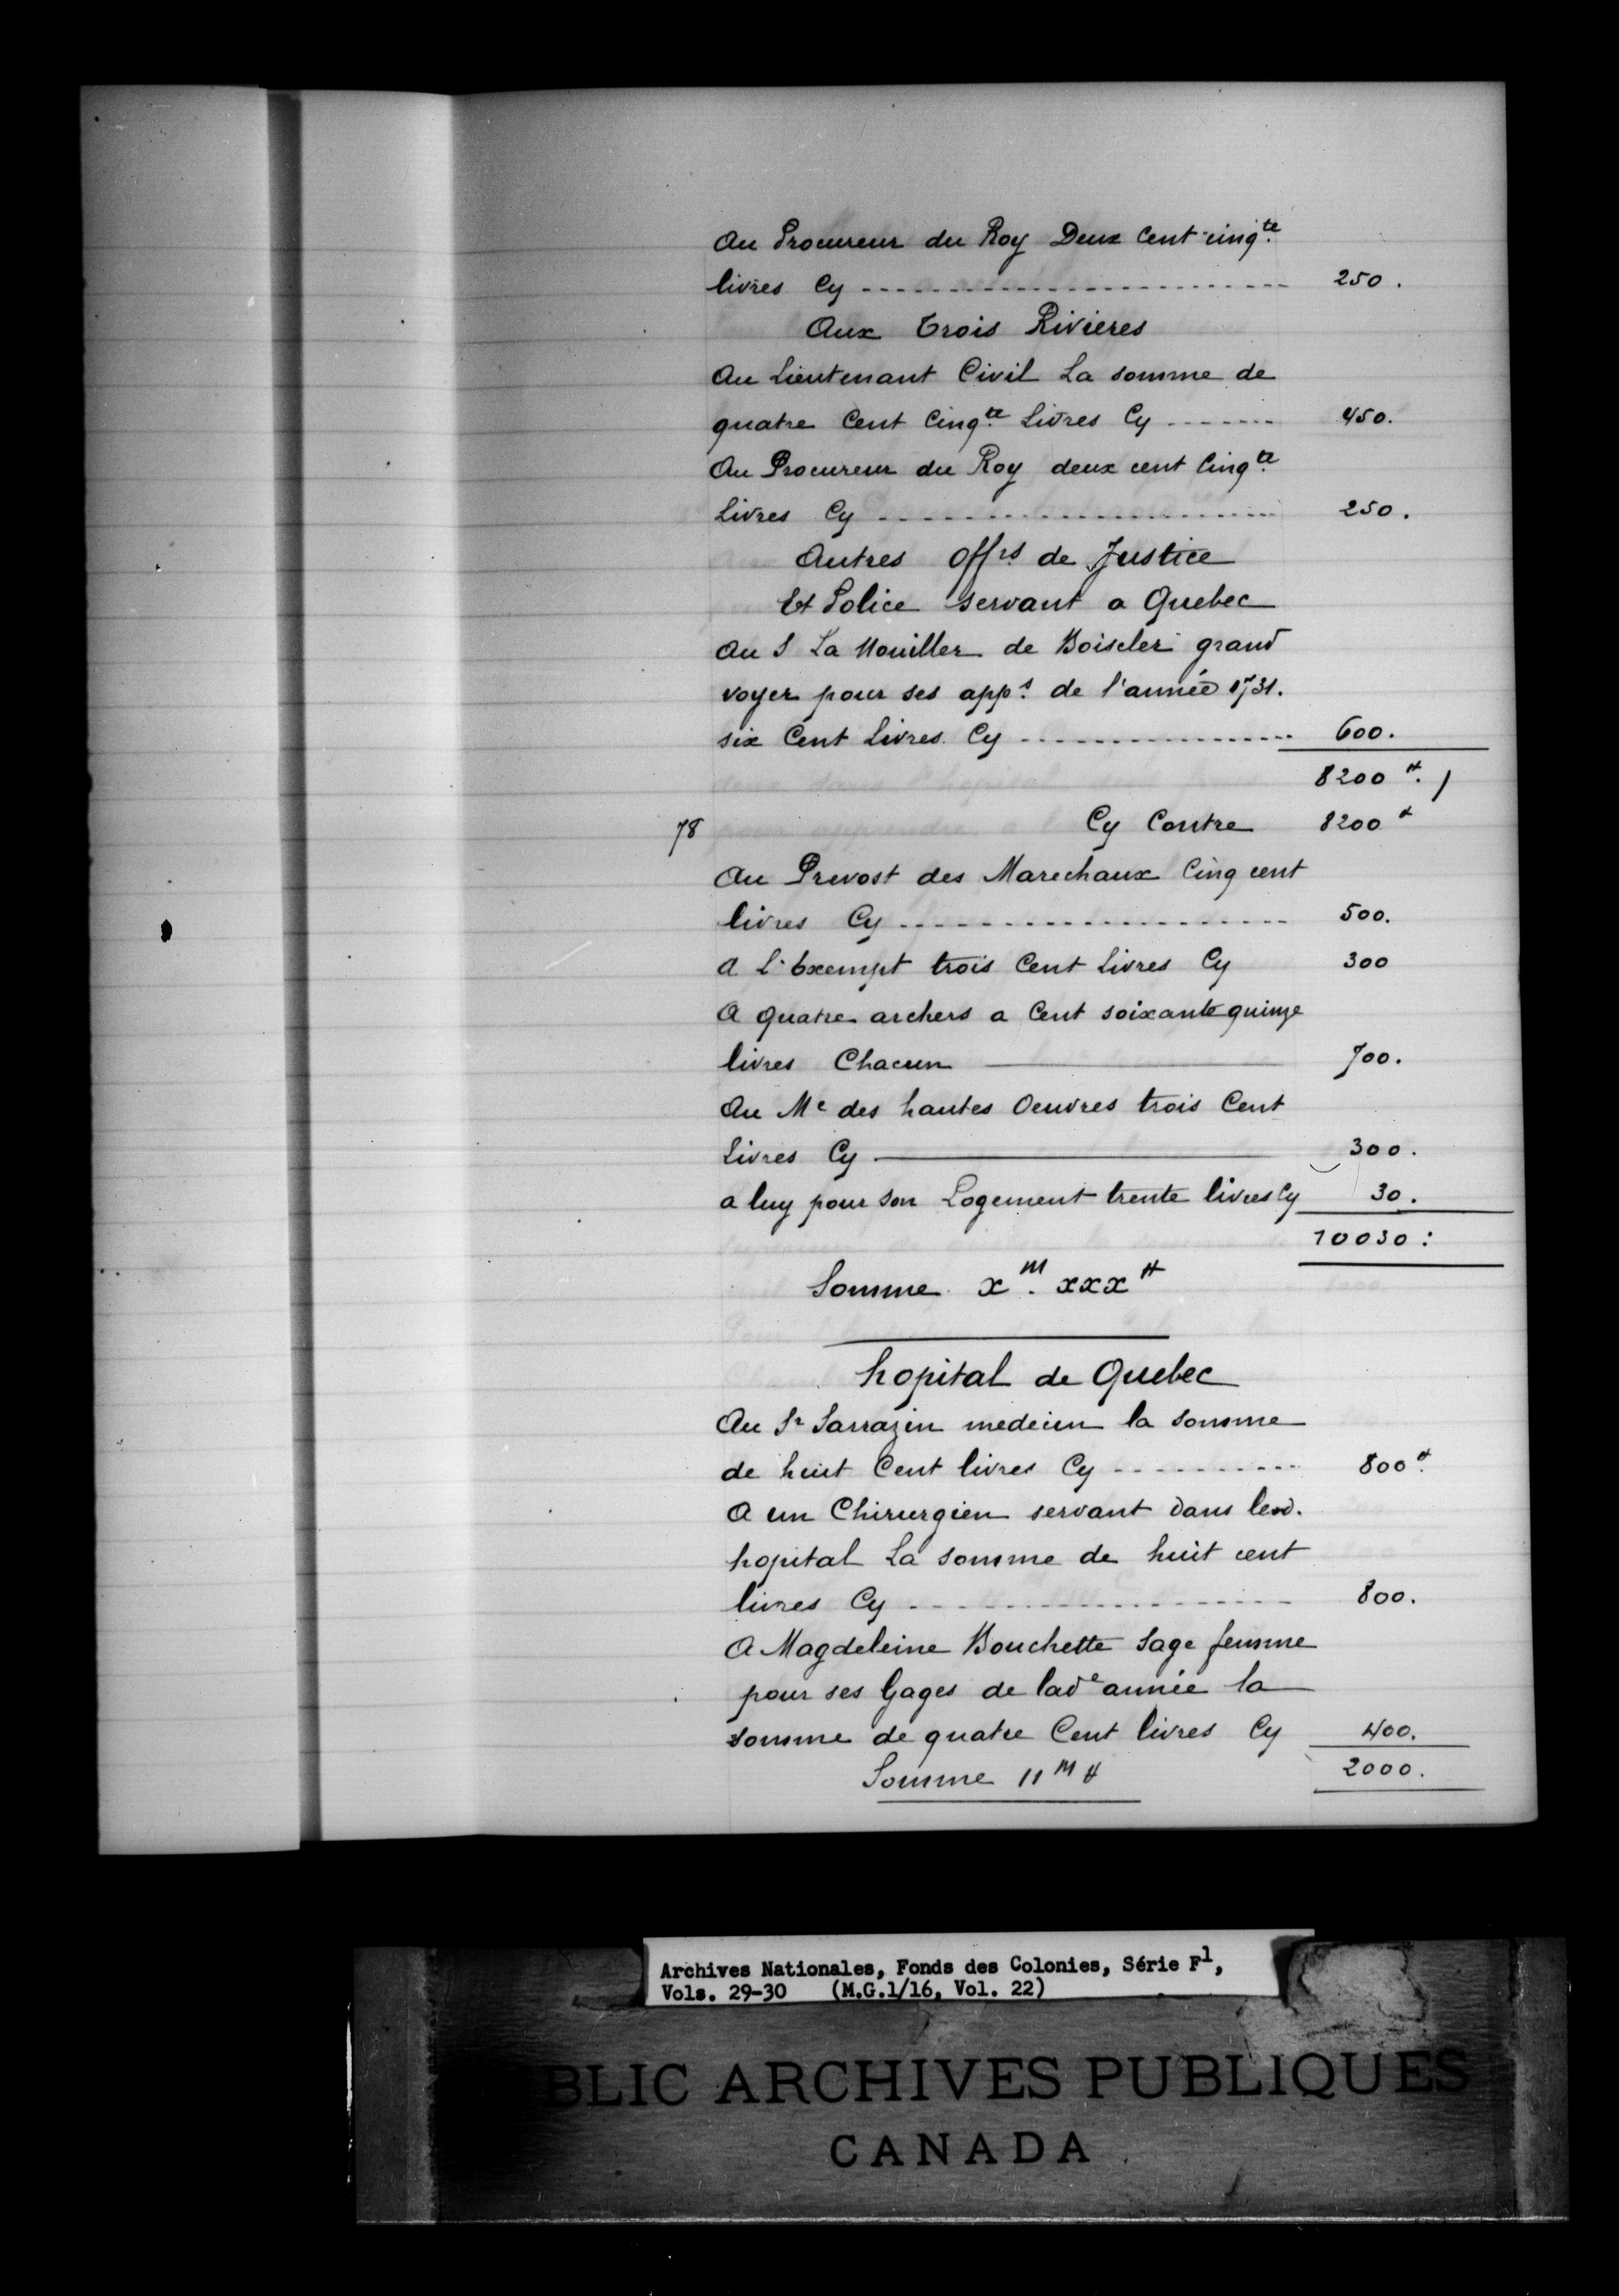 Au Procureur du Roy Deux Cent cinqte.
livres Cy ------------------------ 250.
Aux Trois Rivieres
Au Lieutenant Civil La somme de
quatre Cent Cinqte. Livres Cy ------- 450.
Au Procureur du Roy deux cent Cinqte.
Livres Cy ------------------------ 250.
Autres Offrs. de Justice
Et Police servant a Quebec
Au S La Nouiller de Boiscler grand
voyer pour ses apps. de l'année 1731.
six Cent Livres Cy ---------------- 600.
8200 ₶. /
78 Cy Contre 8200 ₶
Au Prevost des Marechaux Cinq cent
livres Cy ------------------------ 500.
A l'Exempt trois Cent Livres Cy 300
A quatre archers a Cent soixante quinze
livres Chacun 700.
Au Me des hautes Oeuvres trois Cent
Livres Cy 300.
a luy pour son Logement trente livres Cy 30.
10030:
Somme xM. xxx ₶
hopital de Quebec
Au Sr Sarrazin medecin la somme
de huit Cent livres Cy ---------- 800 ₶.
A un Chirurgien servant dans led.
hopital La somme de huit cent
livres Cy -------------------- 800.
A Magdeleine Bouchette Sage femme
pour ses Gages de lade année la
somme de quatre Cent livres Cy 400.
Somme IIM ₶ 2000.
Archives Nationales, Fonds des Colonies, Série F1,
Vols. 29-30 (M.G.1/16, Vol. 22)
BLIC ARCHIVES PUBLIQUES
CANADA